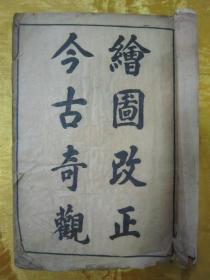 繪圖改正
今古奇觀